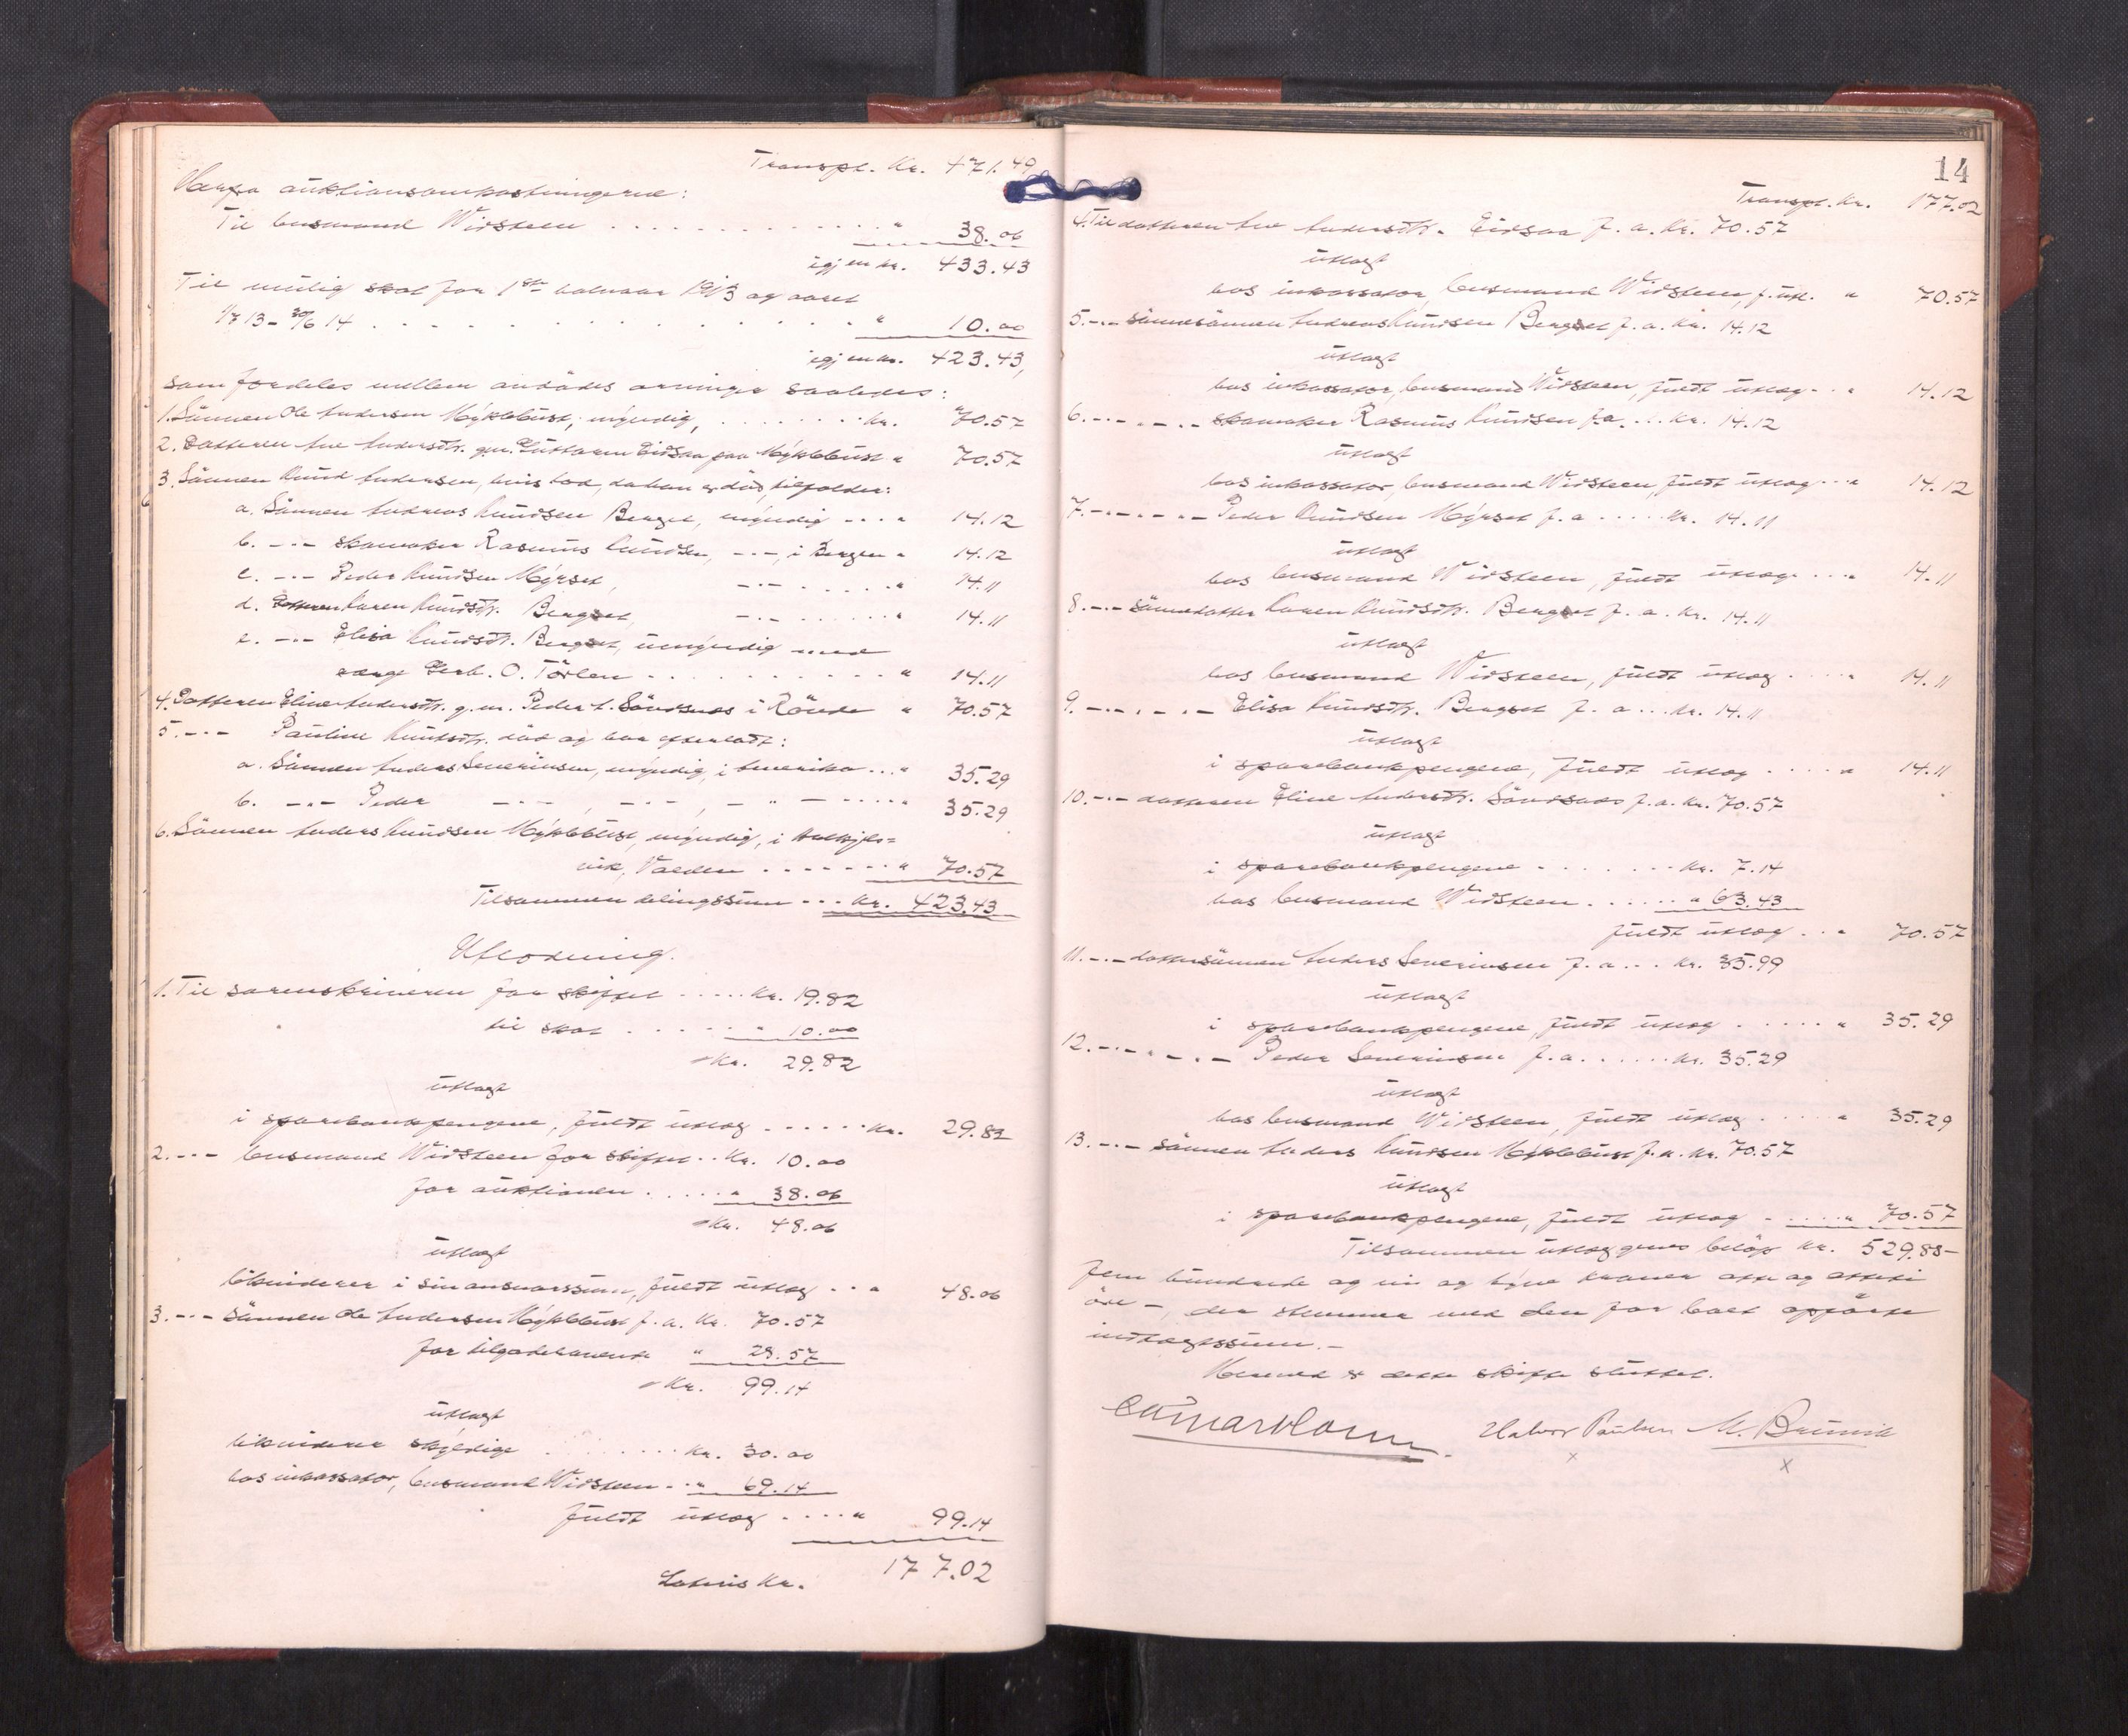 Transpt. Kr. 471.49
Herfra auktionsomkostningerne:
Til lensmand Widsteen . . . . . . . . . . . . . " 38.06
igjen kr. 433.43
Til mulig skat for 1ste halvaar 1913 og aaret
1/7 13 - 30/6 14 . . . . . . . . . . . " 10.00
igjen kr. 423.43,
som fordeles mellem avdødes arvinger saaledes:
1. Sönnen Ole Andersen Myklebust, myndig, . . . . . . . kr. 70.57
2. Datteren Ane Andersdtr. g.m. Guttorm Eidsaa paa Myklebust " 70.57
3. Sönnen Knud Andersen, hvis lod, da han er död, tilfalder:
a. Sönnen Andreas Knudsen Berget, myndig - - - " 14.12
b. -"- skomaker Rasmus Knudsen, -"-, i Bergen " 14.12
c. -"- Peder Knudsen Myrset, -"- . . . . " 14.11
d. Datteren Karen Knudsdtr. Bergset, -"- . . . . . " 14.11
e. -"- Elisa Knudsdtr. Bergset, umyndig med
verge Herb. O. Törlen . . . . . . . . . . " 14.11
4. Datteren Eline Andersdtr. g.m. Peder A. Sändsnes i Rånde " 70.57
5. -"- Pauline Knudsdtr. död og har efterladt:
a. Sönnen Anders Severinsen, myndig, i Amerika . . . " 35.29
b. -"- Peder -"- , -"- , - " - . . . . " 35.29
6. Sönnen Anders Knudsen Myklebust, myndig, i
vik, Valden . . . . . . . " 70.57
Tilsammen delingssum - - - kr. 423.43
Utlodning.
1. Til sorenskriveren for skiftet . . . . . kr. 19.82
til skat . . . . . . " 10.00
Kr. 29.82
utlagt
i sparebankpengene, fuldt utlæg . . . . . . kr. 29.82
2. -"- lensmand Widsteen for skiftet . . Kr. 10.00
for auktionen . . . . . " 38.06
Kr. 48.06
utlagt
likviderer i sin ansvarssum, fuldt utlæg . . " 48.06
3. -"- sönnen Ole Andersen Myklebust f. a. Kr. 70.57
for tilgodehavende " 28.57
Kr. 99.14
utlagt
likviderer skyldige . . . . . . . . kr. 30.00
hos inkassator, lensmand Widsteen - . " 69.14
fuldt utlæg . . . . " 99.14
Lateris Kr. 177.02
14
Transpt. Kr. 177.02
4. Til datteren Ane Andersdtr. Eidsaa f. a. Kr. 70.57
utlagt
hos inkassator, lensmand Widsteen, f. utl. " 70.57
5. -"- sönnesönnen Andreas Knudsen Bergset f. a. Kr. 14.12
utlagt
hos inkassator, lensmand Widsteen, fuldt utlæg - . " 14.12
6. -"- - " - skomaker Rasmus Knudsen f. a. . . . Kr. 14.12
utlagt
hos inkassator, lensmand Widsteen, fuldt utlæg - . " 14.12
7. -"- - " - Peder Knudsen Myrset f. a . . . . . Kr. 14.11
utlagt
hos lensmand Widsteen, fuldt utlæg . . . " 14.11
8. -"- sönnedatter Karen Knudsdtr. Bergset f. a. Kr. 14.11
utlagt
hos lensmand Widsteen, fuldt utlæg . . . . " 14.11
9. -"- - " - Elisa Knudsdtr. Bergset f. a . . . Kr. 14.11
utlagt
i sparebankpengene, fuldt utlæg . . . . " 14.11
10. -"- datteren Eline Andersdtr. Sändsnes f. a. Kr. 70.57
utlagt
i sparebankpengene . . . . . . . Kr. 7.14
hos lensmand Widsteen . . . . . . " 63.43
fuldt utlæg . . " 70.57
11. -"- dattersönnen Anders Severinsen f. a . . . Kr. 35.99
utlagt
i sparebankpengene, fuldt utlæg . . . . . " 35.29
12. -"- - " - Peder Severinsen f. a . . . . . . Kr. 35.29
utlagt
hos lensmand Widsteen, fuldt utlæg . . . . " 35.29
13. -"- sönnen Anders Knudsen Myklebust f. a. Kr. 70.57
utlagt
i sparebankpengene, fuldt utlæg - . . . . " 70.57
Tilsammen utlæggenes belöp Kr. 529.88 -
fem hundrede og ni og tyve kroner otte og otteti
öre -, der stemmer med den for boet opförte
indtægtssum. -
Hermed er dette skifte sluttet.
Halvor Paulsen M. Brunvik
x x